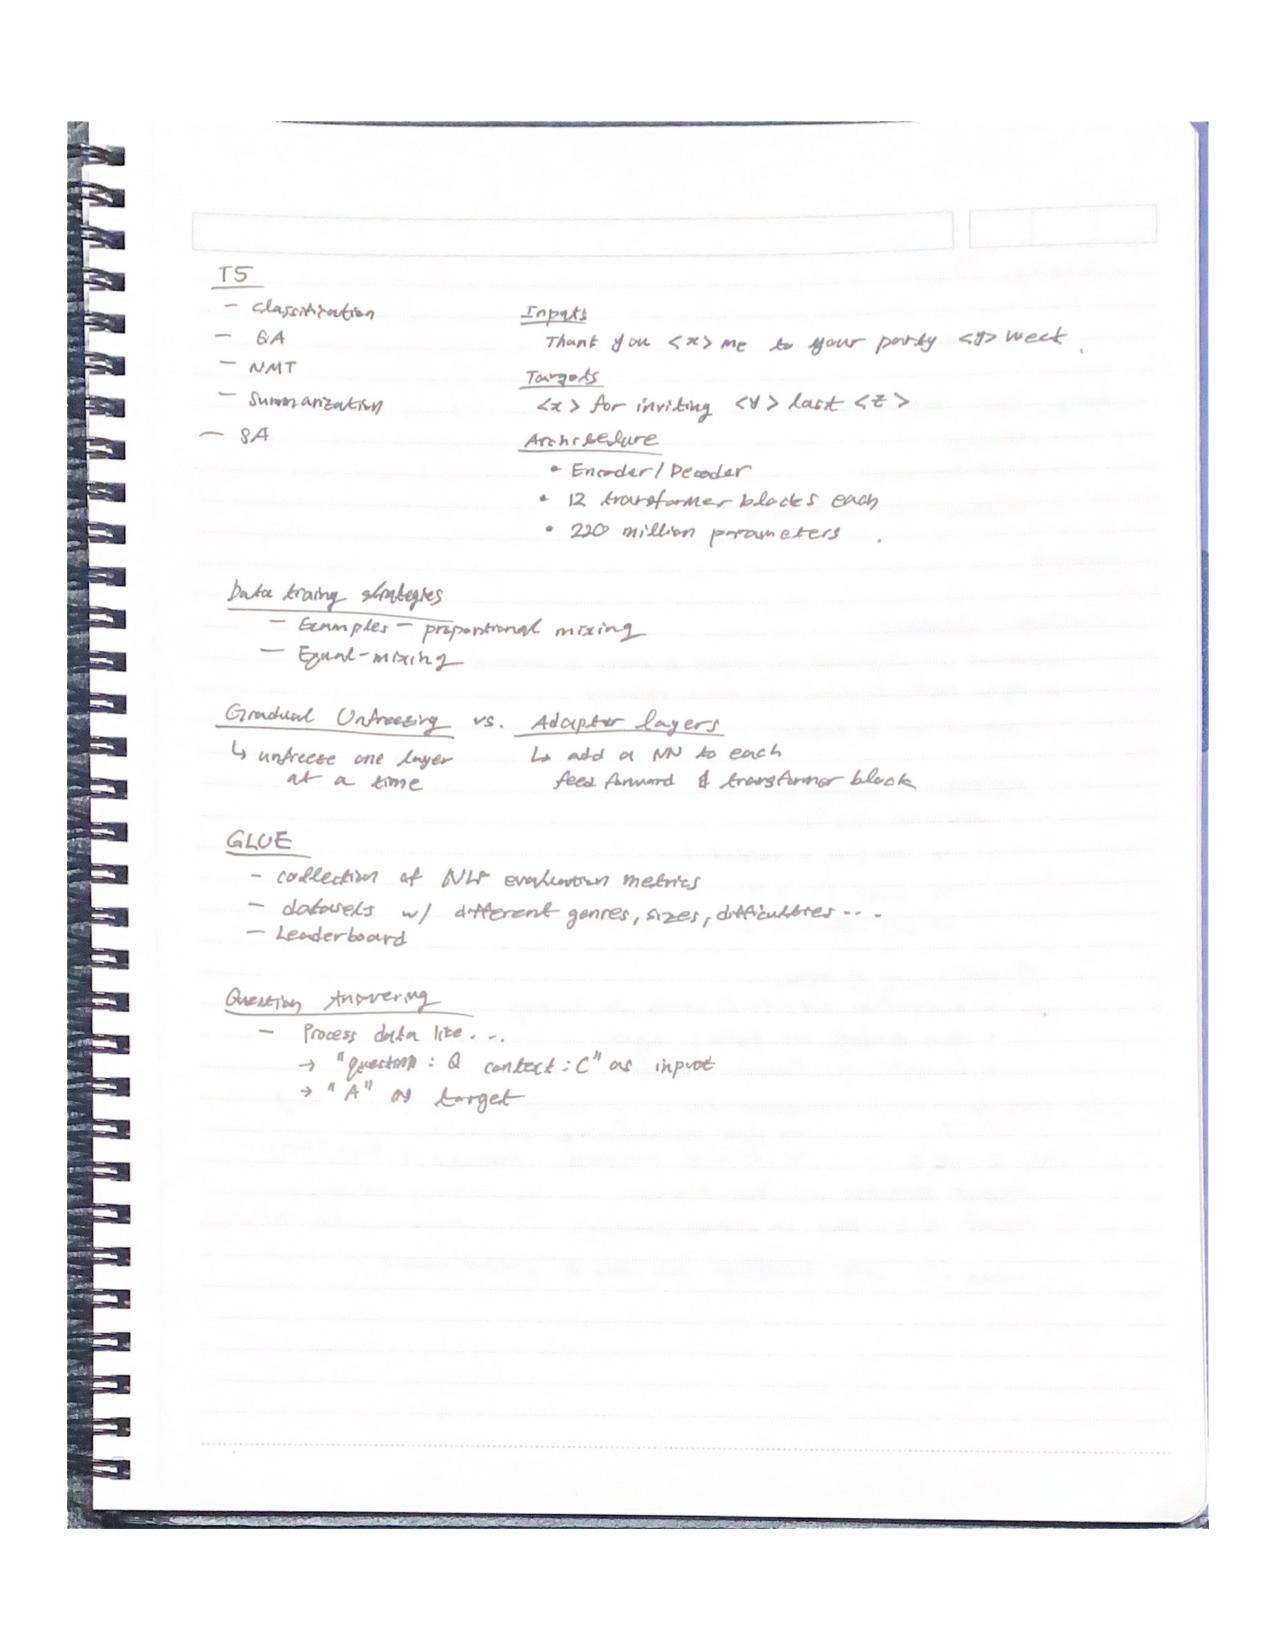 T5
- Classification
- QA
- NMT
- Summarization
- SA
Inputs
Thank you <x> me to your party <y> week.
Targets
<x> for inviting <y> last <z>
Architecture
• Encoder/Decoder
• 12 transformer blocks each
• 220 million parameters.
Data traing strategies
- Examples - proportional mixing
- Equal-mixing
Gradual Unfreezing vs. Adapter layers
↳ unfreeze one layer
at a time
↳ add a NN to each
feed forward & transformer block
GLUE
- collection of NLP evaluation metrics
- datasets w/ different genres, sizes, difficulties...
- Leaderboard
Question Answering
- Process data like...
→ "question: Q context: C" as input
→ "A" as target